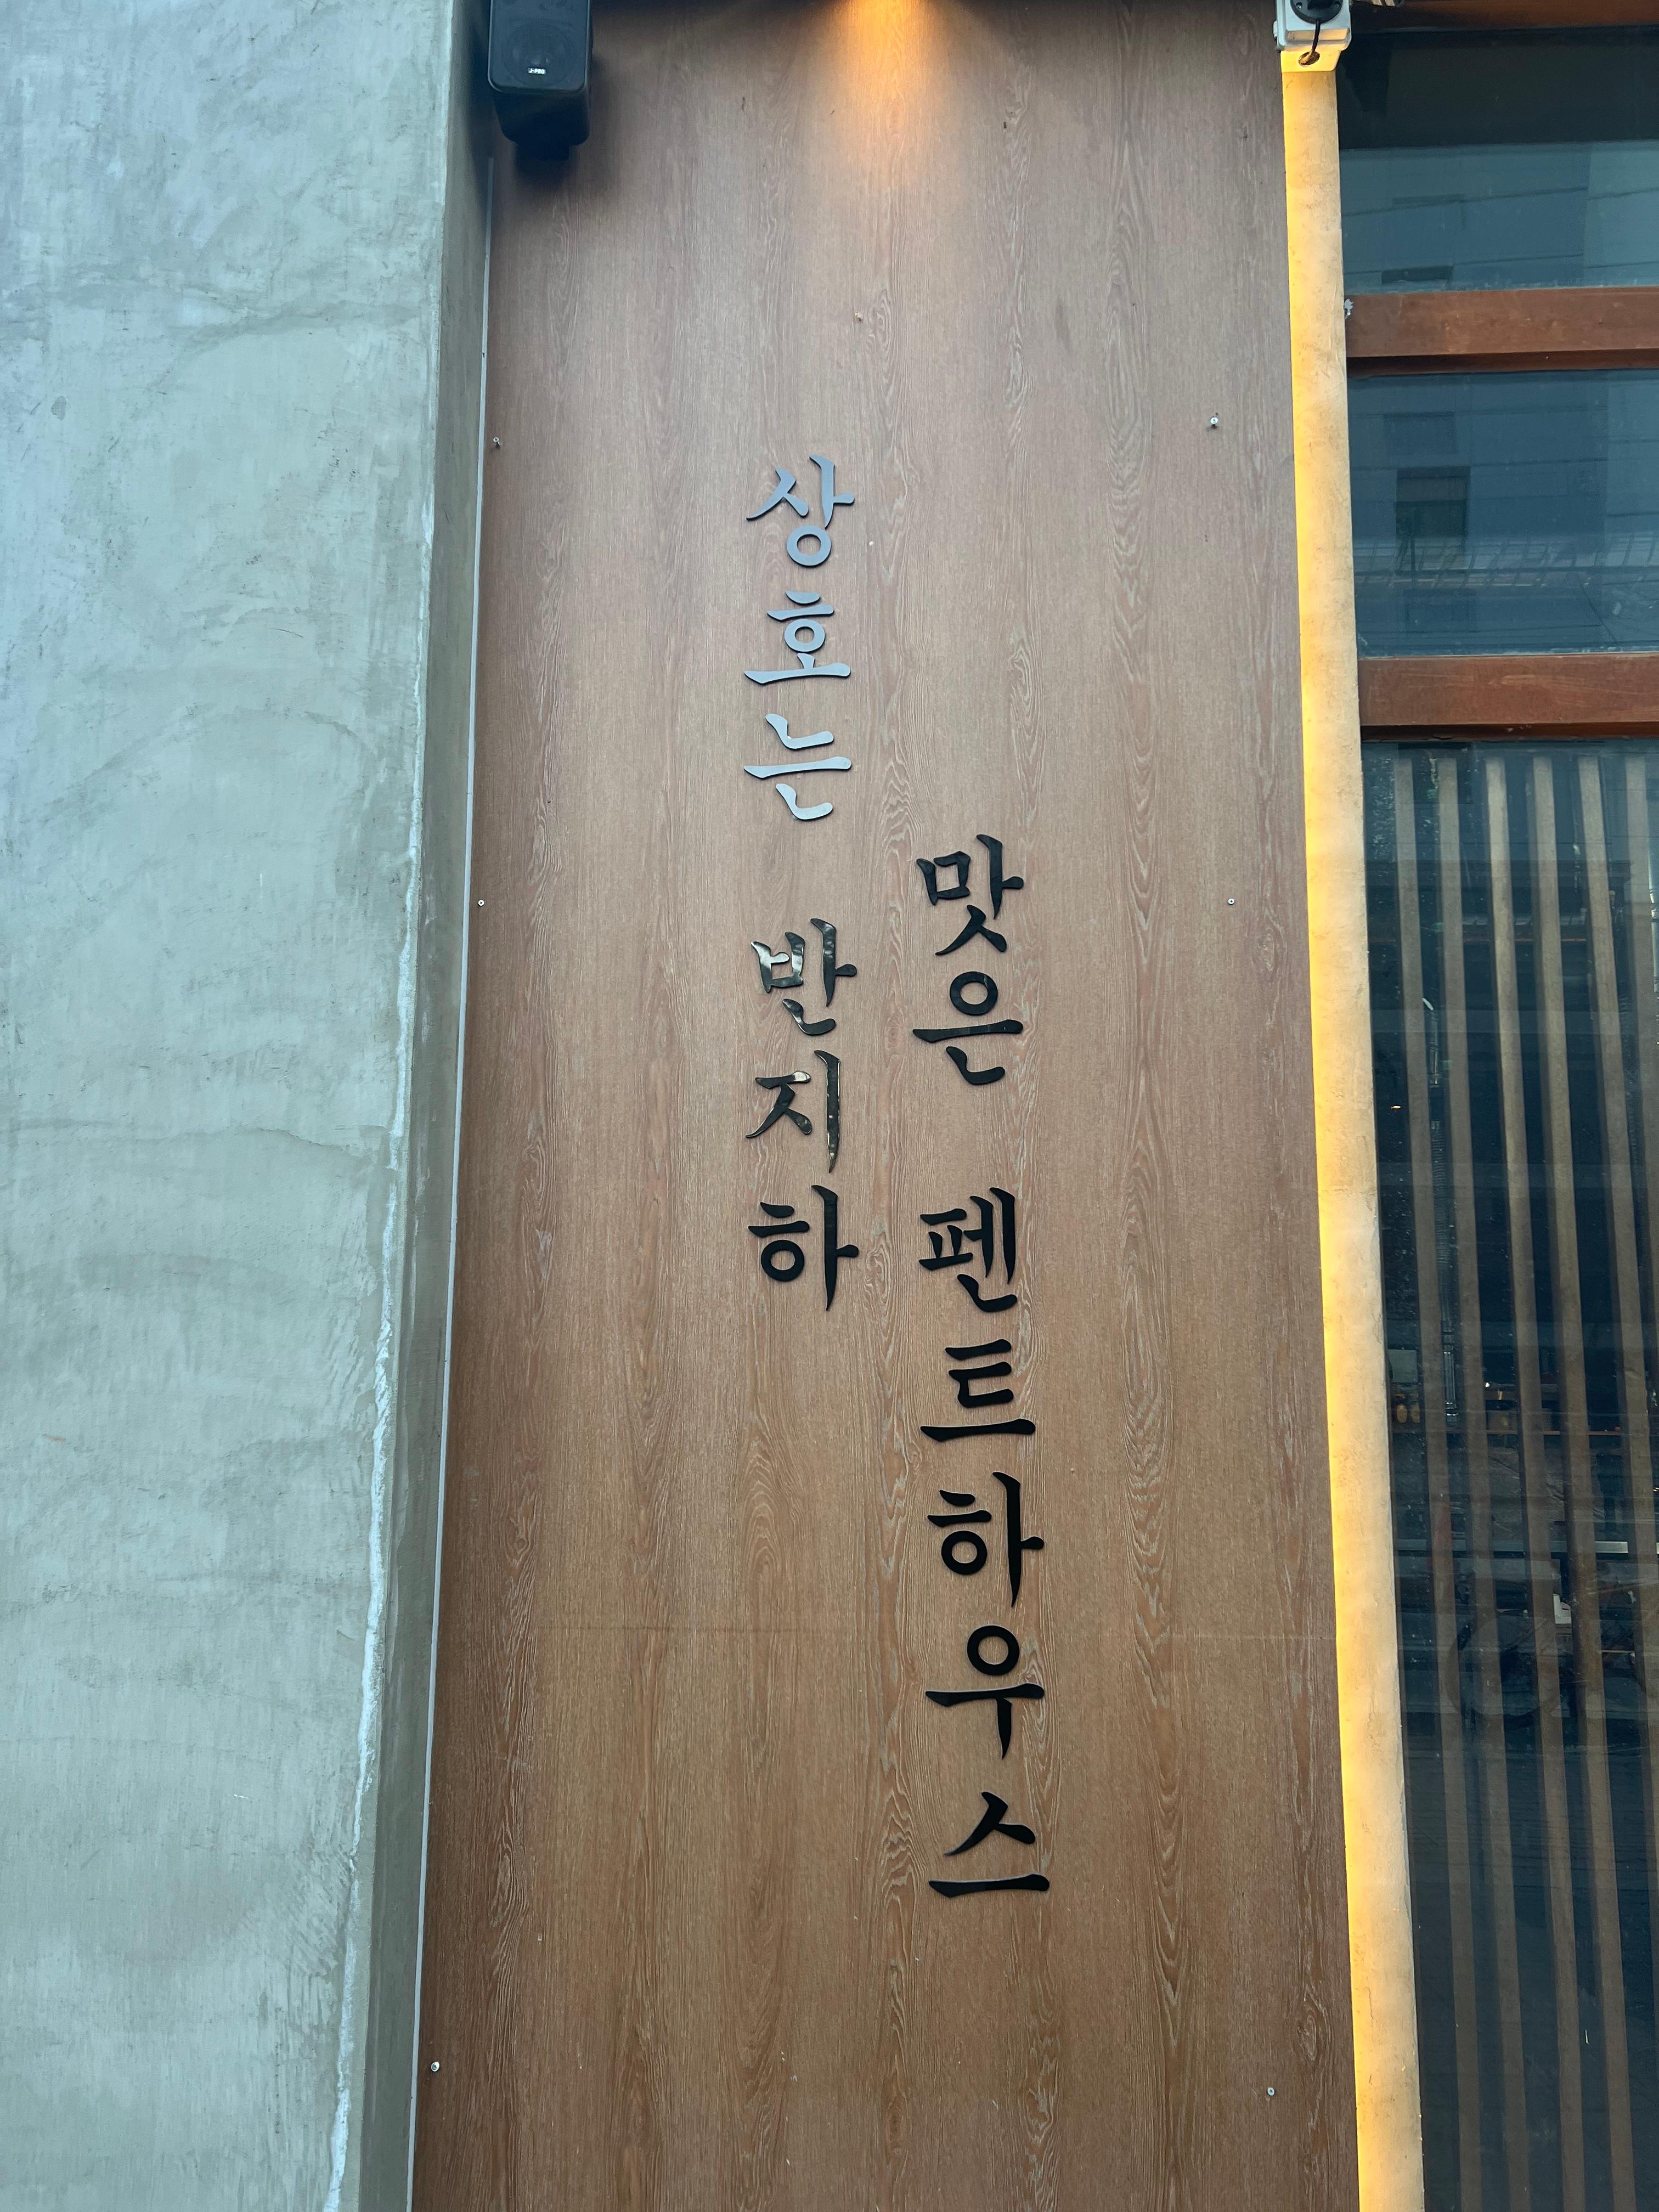 J-PRO
상호는 반지하
맛은 펜트하우스